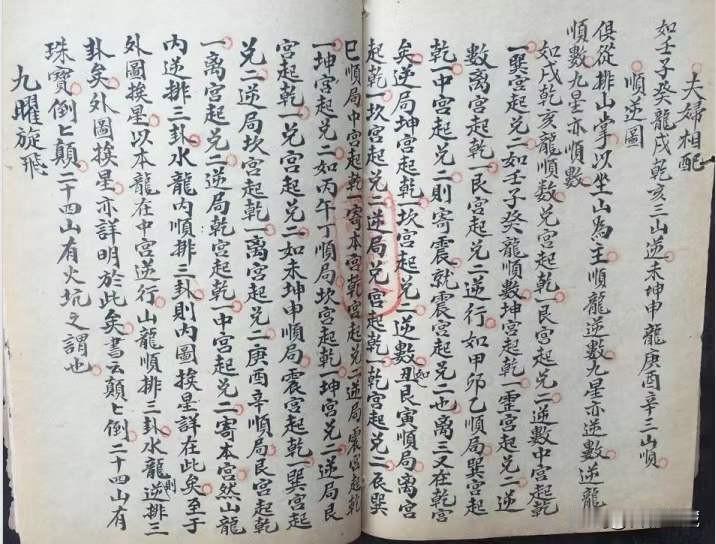 夫婦相配
如壬子癸龍戌乾亥三山逆未坤申龍庚酉辛三山順
順逆圖
俱從排山掌以坐山為主順龍逆數九星亦逆數逆龍
順數九星亦順數
如戌乾亥龍順數兌宮起乾一艮宮起兌二逆數中宮起乾
一巽宮起兌二如壬子癸龍順數坤宮起乾一震宮起兌二逆
數離宮起乾一艮宮起兌二逆行如甲卯乙順局巽宮起
乾一中宮起兌二則寄震就震宮起兌二也離三又在乾宮
矣逆局坤宮起乾一坎宮起兌二逆數如丑艮寅順局離宮
起乾一坎宮起兌二逆局兌宮起乾一乾宮起兌二辰巽
巳順局中宮起乾一寄本宮乾宮起兌二逆局震宮起乾
一坤宮起兌二如丙午丁順局坎宮起乾一坤宮兌二逆局艮
宮起乾一兌宮起兌二如未坤申順局震宮起乾一巽宮起
兌二逆局坎宮起乾一離宮起兌二庚酉辛順局艮宮起乾
一離宮起兌二逆局乾宮起乾一中宮起兌二寄本宮然山龍
內逆排三卦水龍內順排三卦則內圖挨星詳在此矣至于
外圖挨星以本龍在中宮逆行山龍順排三卦水龍則逆排三
卦矣外圖挨星亦詳明於此矣書云顛々倒二十四山有
珠寶倒々顛二十四山有火坑之謂也
九曜旋飛